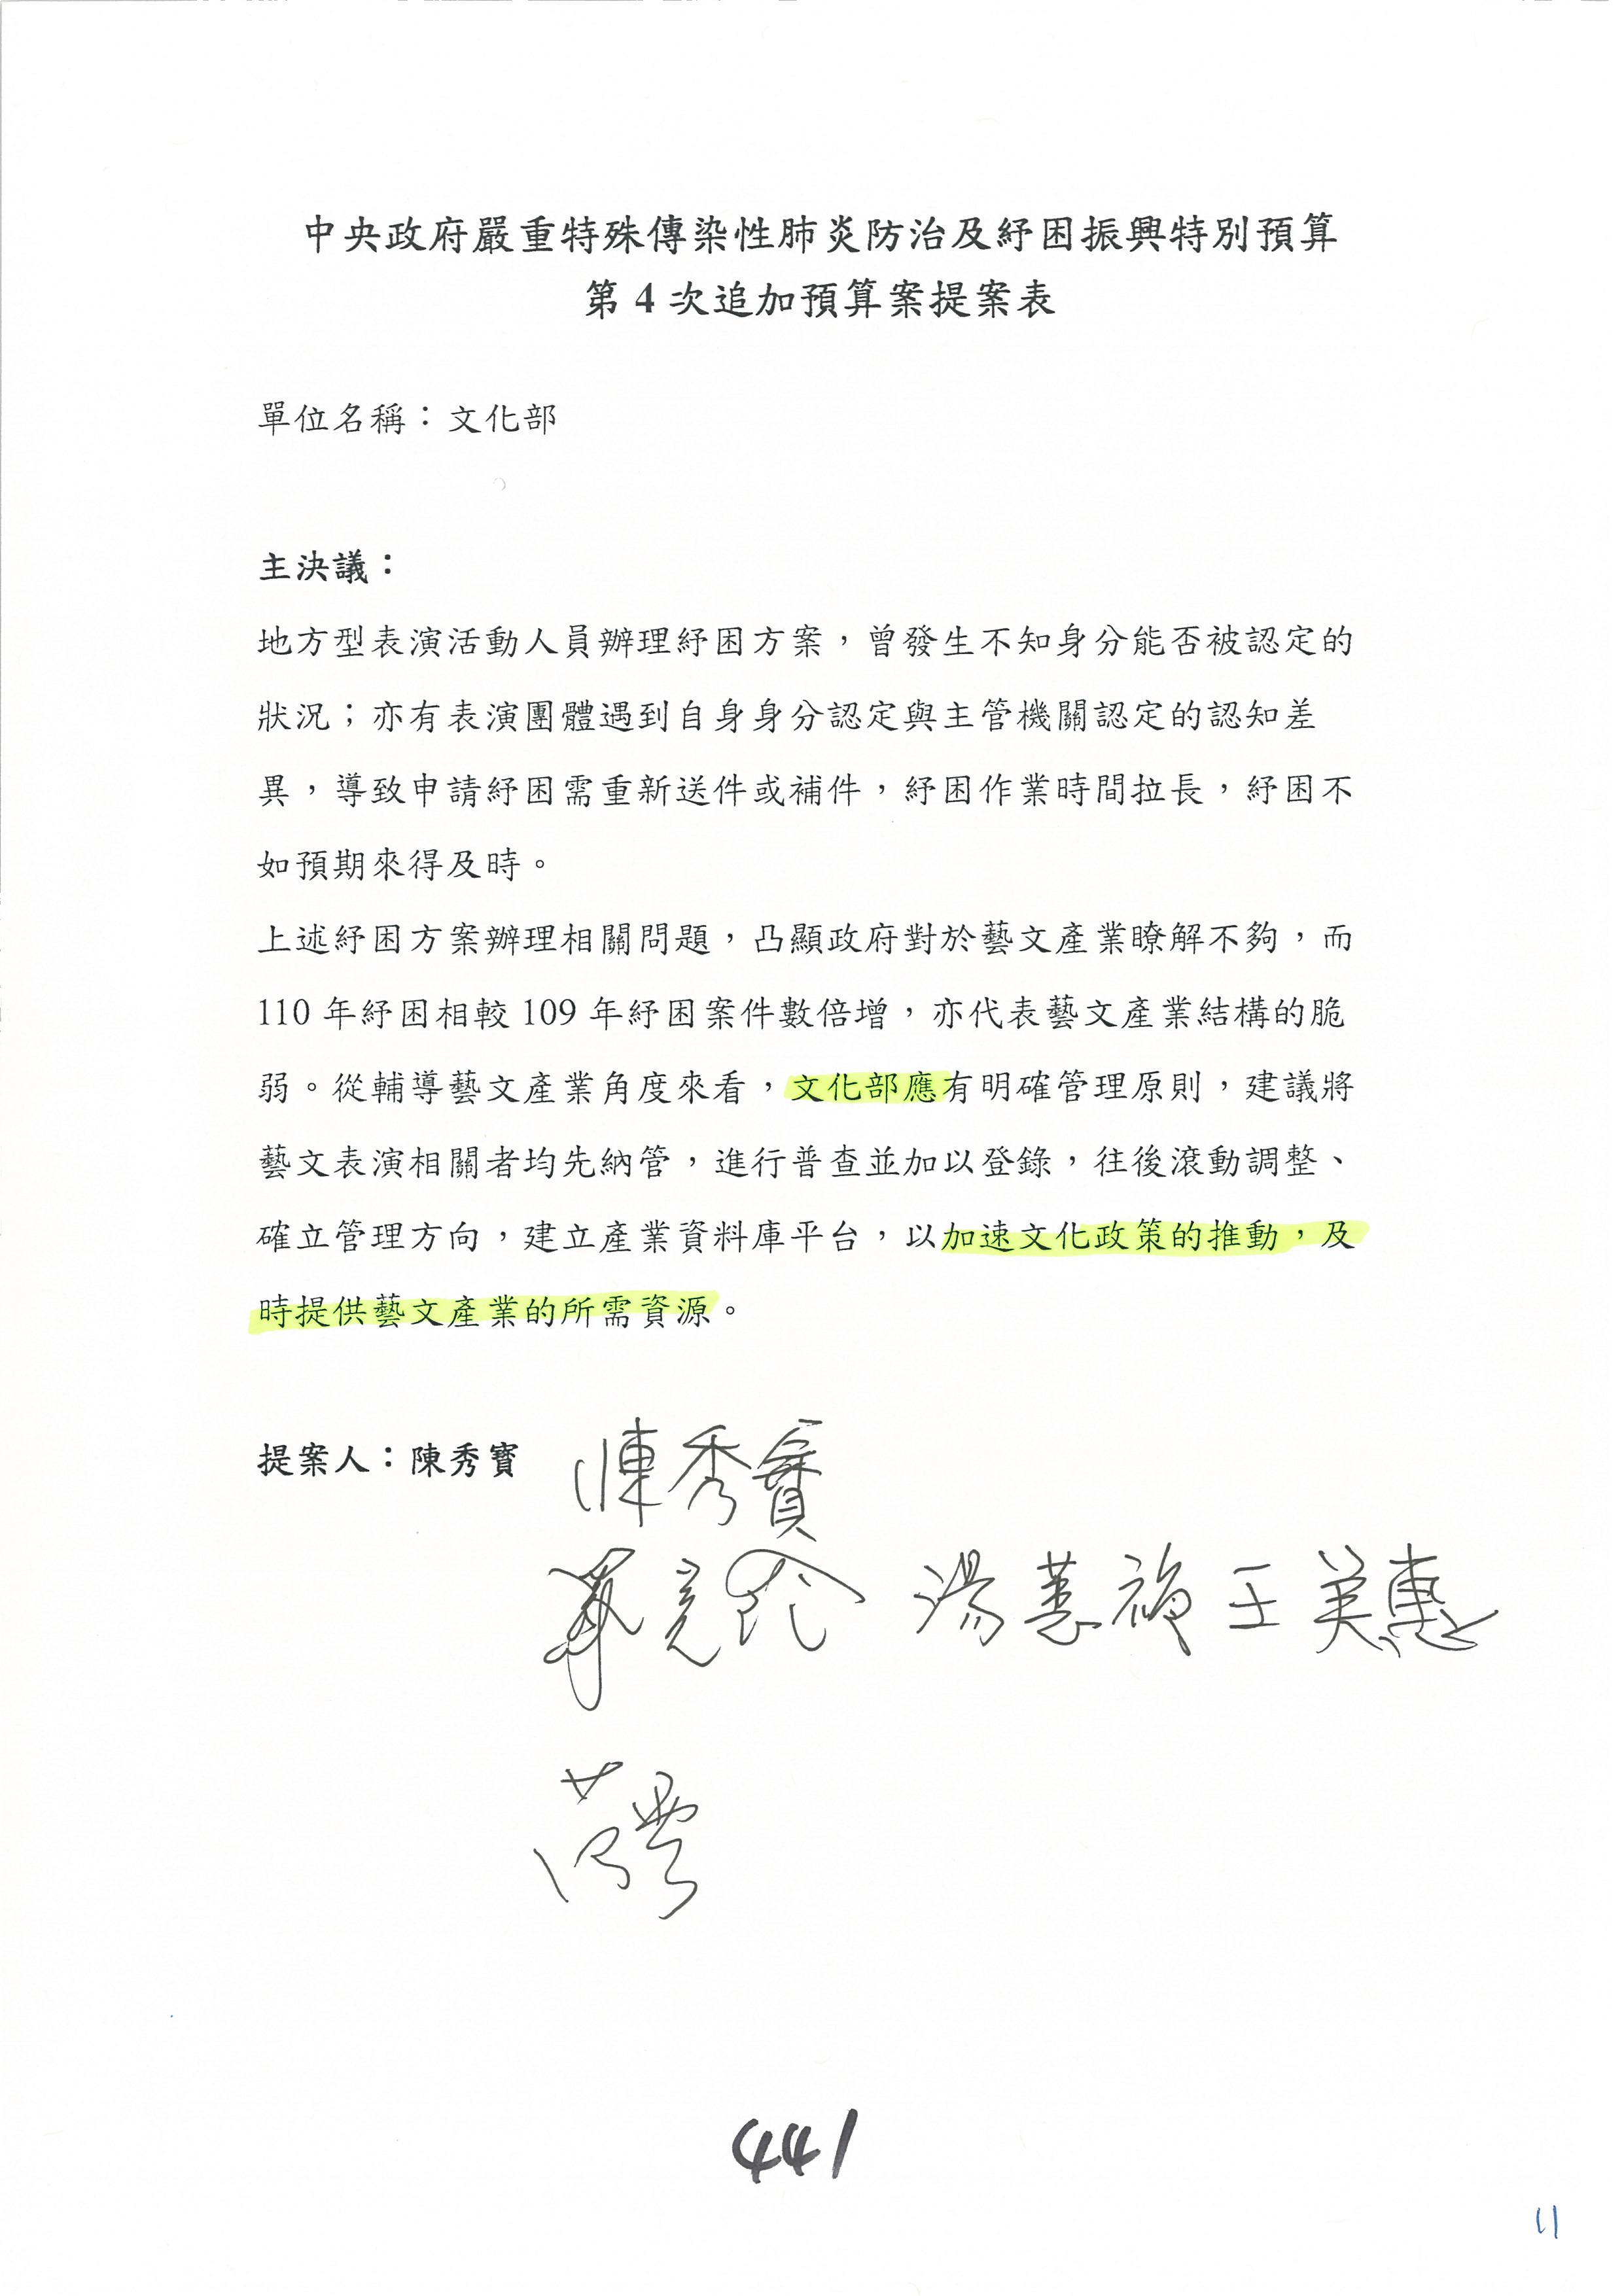 中央政府嚴重特殊傳染性肺炎防治及紓困振興特別預算
第 4 次追加預算案提案表
單位名稱：文化部
主決議：
地方型表演活動人員辦理紓困方案，曾發生不知身分能否被認定的
狀況；亦有表演團體遇到自身身分認定與主管機關認定的認知差
異，導致申請紓困需重新送件或補件，紓困作業時間拉長，紓困不
如預期來得及時。
上述紓困方案辦理相關問題，凸顯政府對於藝文產業瞭解不夠，而
110 年紓困相較 109 年紓困案件數倍增，亦代表藝文產業結構的脆
弱。從輔導藝文產業角度來看，文化部應有明確管理原則，建議將
藝文表演相關者均先納管，進行普查並加以登錄，往後滾動調整、
確立管理方向，建立產業資料庫平台，以加速文化政策的推動，及
時提供藝文產業的所需資源。
提案人：陳秀寳 陳秀寳
湯蕙禎 王美惠
441
11